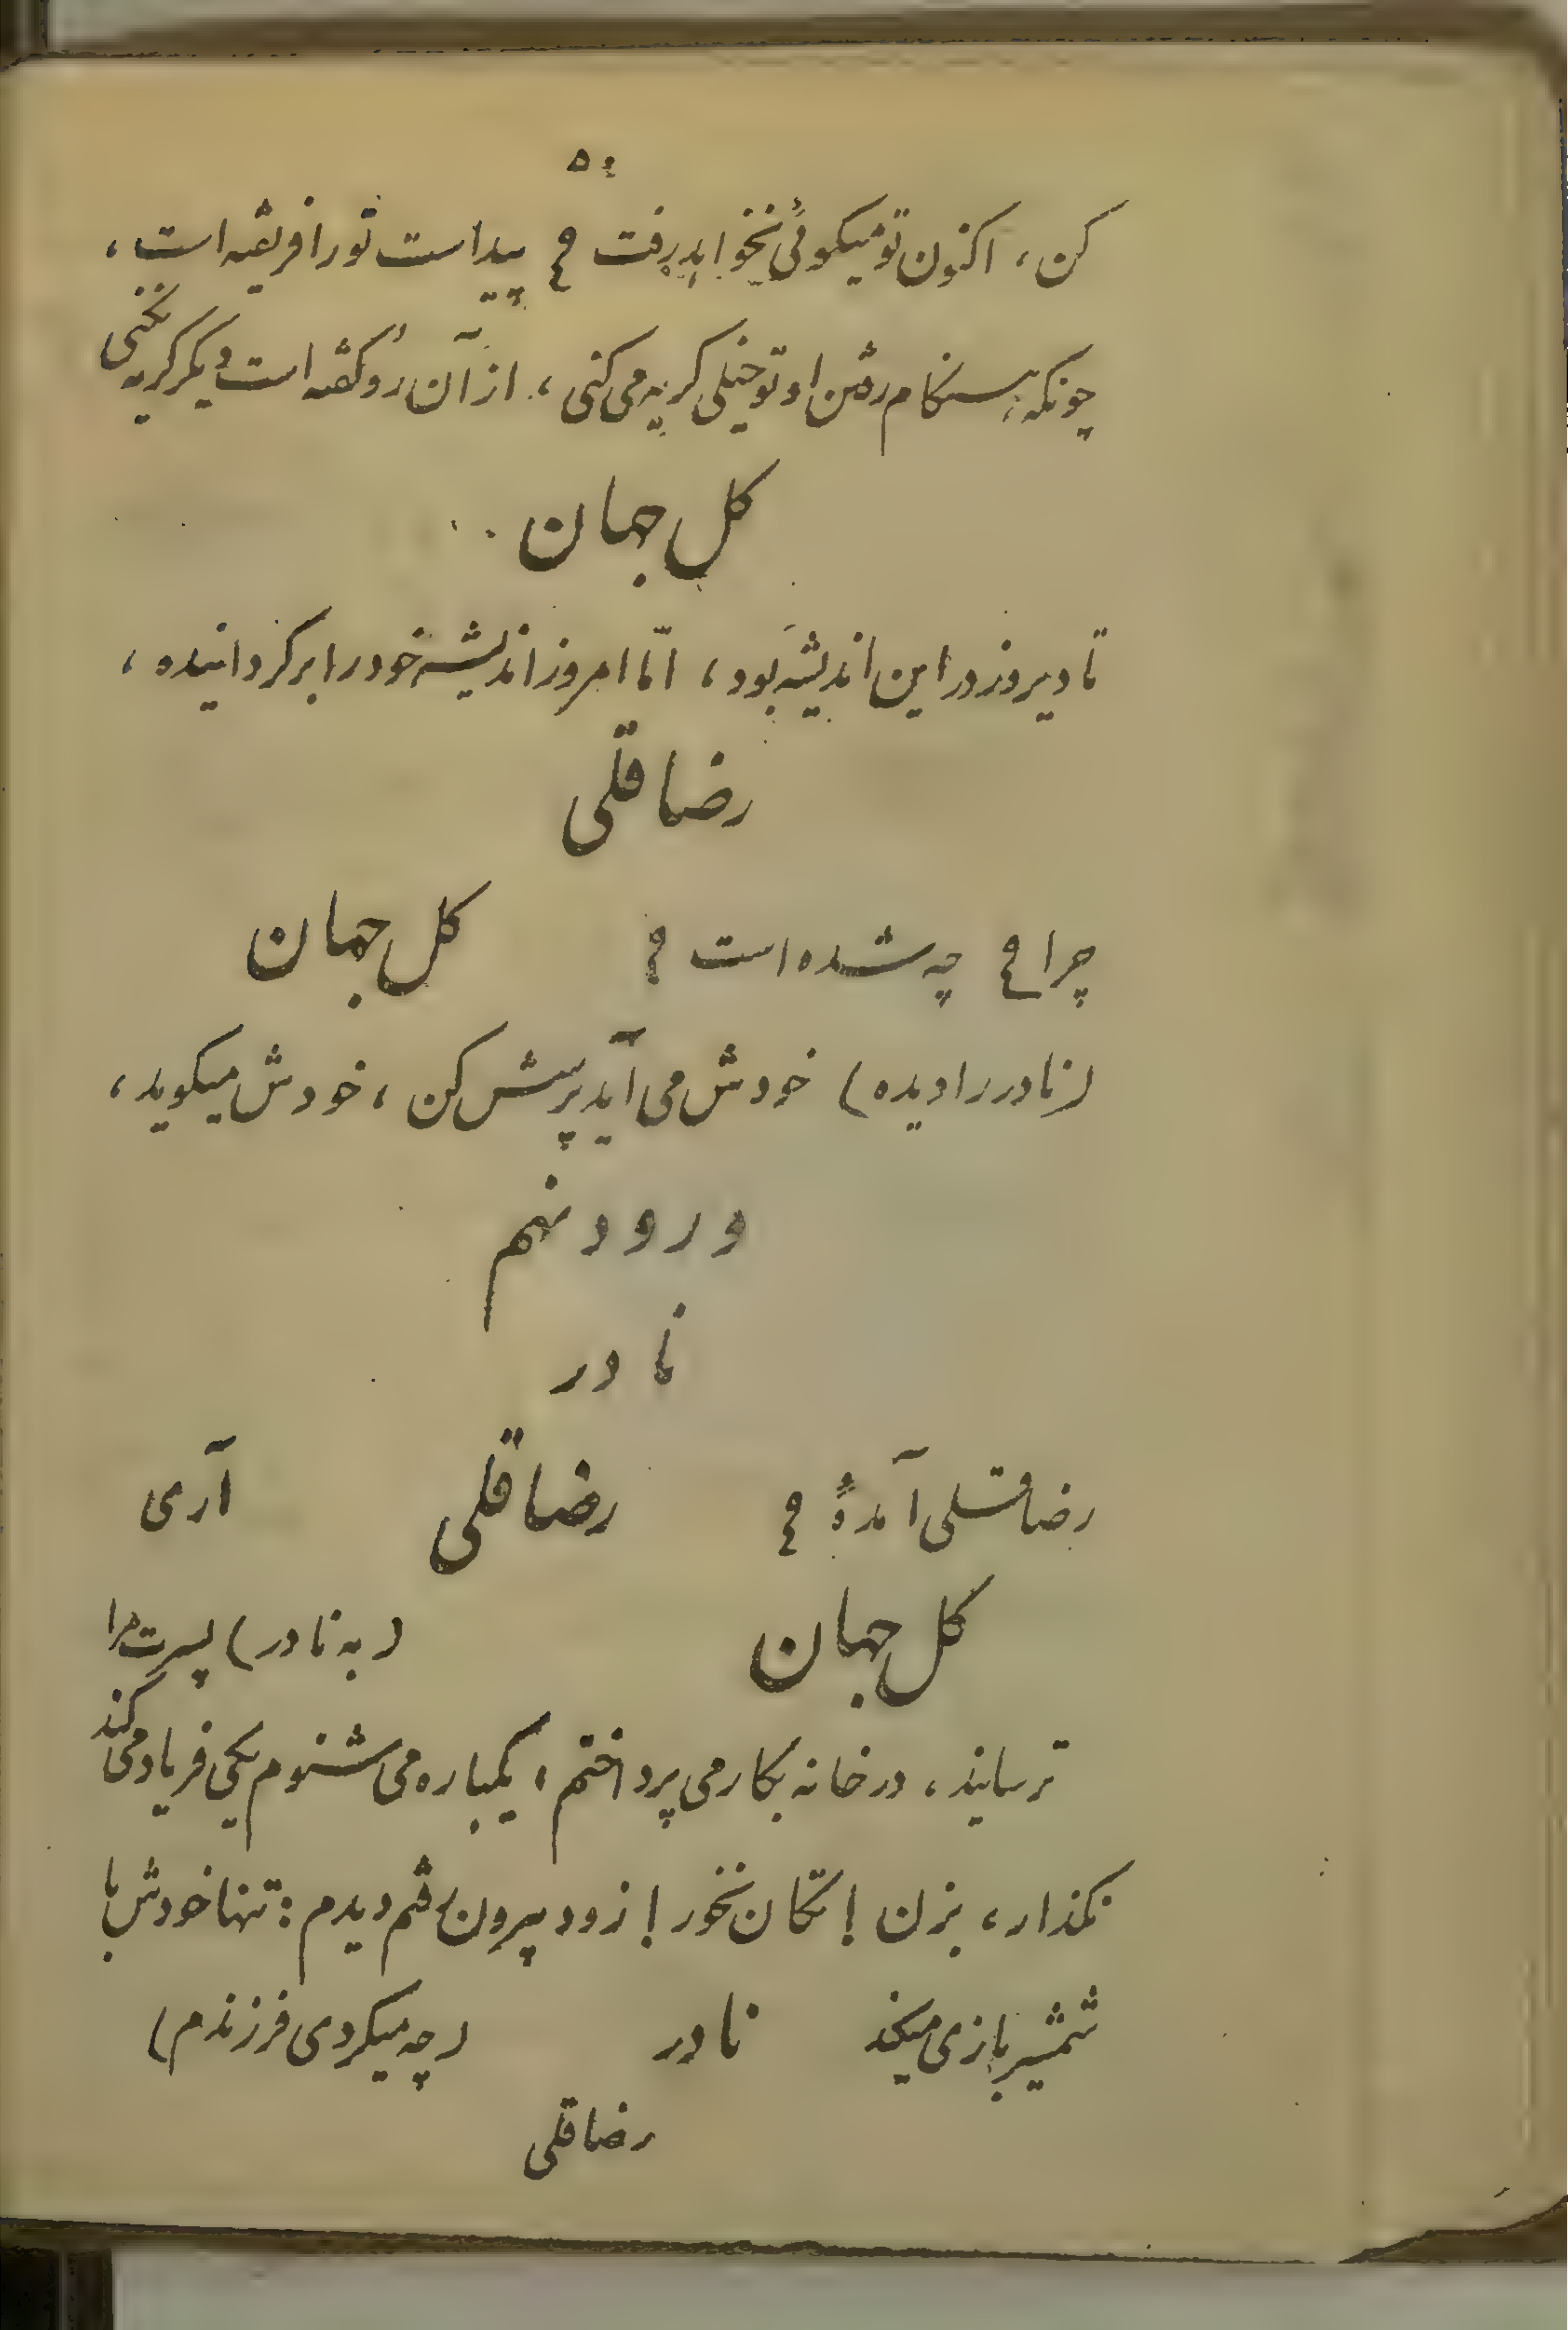 کن، اکنون تو میکوئی نخواهد رفت؟ پیداست تو را فریفته است،
چونکه هنگام رفتن او تو خیلی کریه می کنی، از آن رو گفته است دیگر کریه نکنی
کل جهان
تا دیروز در این اندیشه بود، امّا امروز اندیشه خود را بر کردانیده،
رضا قلی
چرا؟ چه شده است؟ کل جهان
(نادر را دیده) خودش می آید پرسش کن، خودش میکوید،
ورود نهم
نادر
رضا قلی آمدهٔ؟ رضا قلی آری
کل جهان (به نادر) پسرت مرا
ترسانید، در خانه بکار می پرداختم، یکباره می شنوم یکی فریاد می کند
نکذار، بزن! تکان نخور! زود بیرون رفتم دیدم: تنها خودش با
شمشیر بازی میکند نادر (چه میکردی فرزندم)
رضا قلی